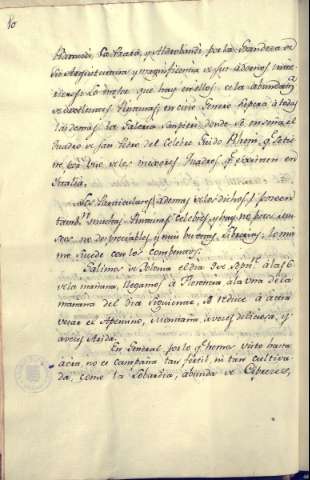 10
y Aldrobandi por la Grandeza de
su Arquitectura, y magnificencia de sus adornos inte-
riores. Lo mejor que hay en ellos, es la abundancia
de excelentes Pinturas, en cuio Genero supera à todas
las demas la Galeria Sanpieri donde se enseña el
Quadro de San Pedro del Celebre Guido Rheni, qe se tie-
ne por uno de los mejores Quadros qe existen en
Italia.
Los Particulares ademas de los dichos, poseen
tambn muchas Pinturas Celebres, y hay no pocos
no despreciables, y mui buenas Librerias; lo mis-
mo sucede con los Conventos.
Salimos de Bolonia el dia 3 de Sepre à las 6
de la mañana, llegamos à Florencia à la Una de la
mañana del dia siguiente. Se reduce à atra-
vesar el Apenino, Montaña à veces deliciosa, y
à veces Arida.
En General por lo qe hemos visto hasta
àcia, no es campaña tan fertil, ni tan cultiva-
da, como la Lobardia, abunda de Cipreses,